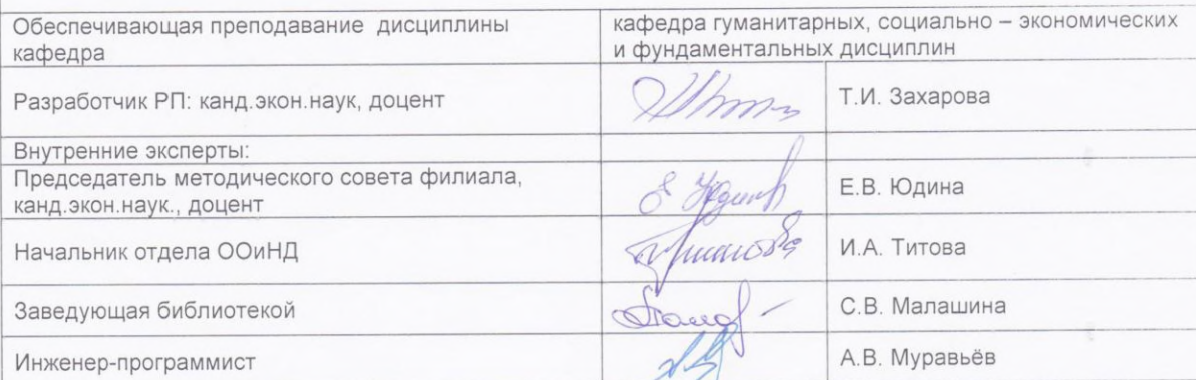 Обеспечивающая преподавание дисциплины
кафедра
кафедра гуманитарных, социально – экономических
и фундаментальных дисциплин
Разработчик РП: канд.экон.наук, доцент
Т.И. Захарова
Внутренние эксперты:
Председатель методического совета филиала,
канд.экон.наук., доцент
Е.В. Юдина
Начальник отдела ООиНД
И.А. Титова
Заведующая библиотекой
С.В. Малашина
Инженер-программист
А.В. Муравьёв